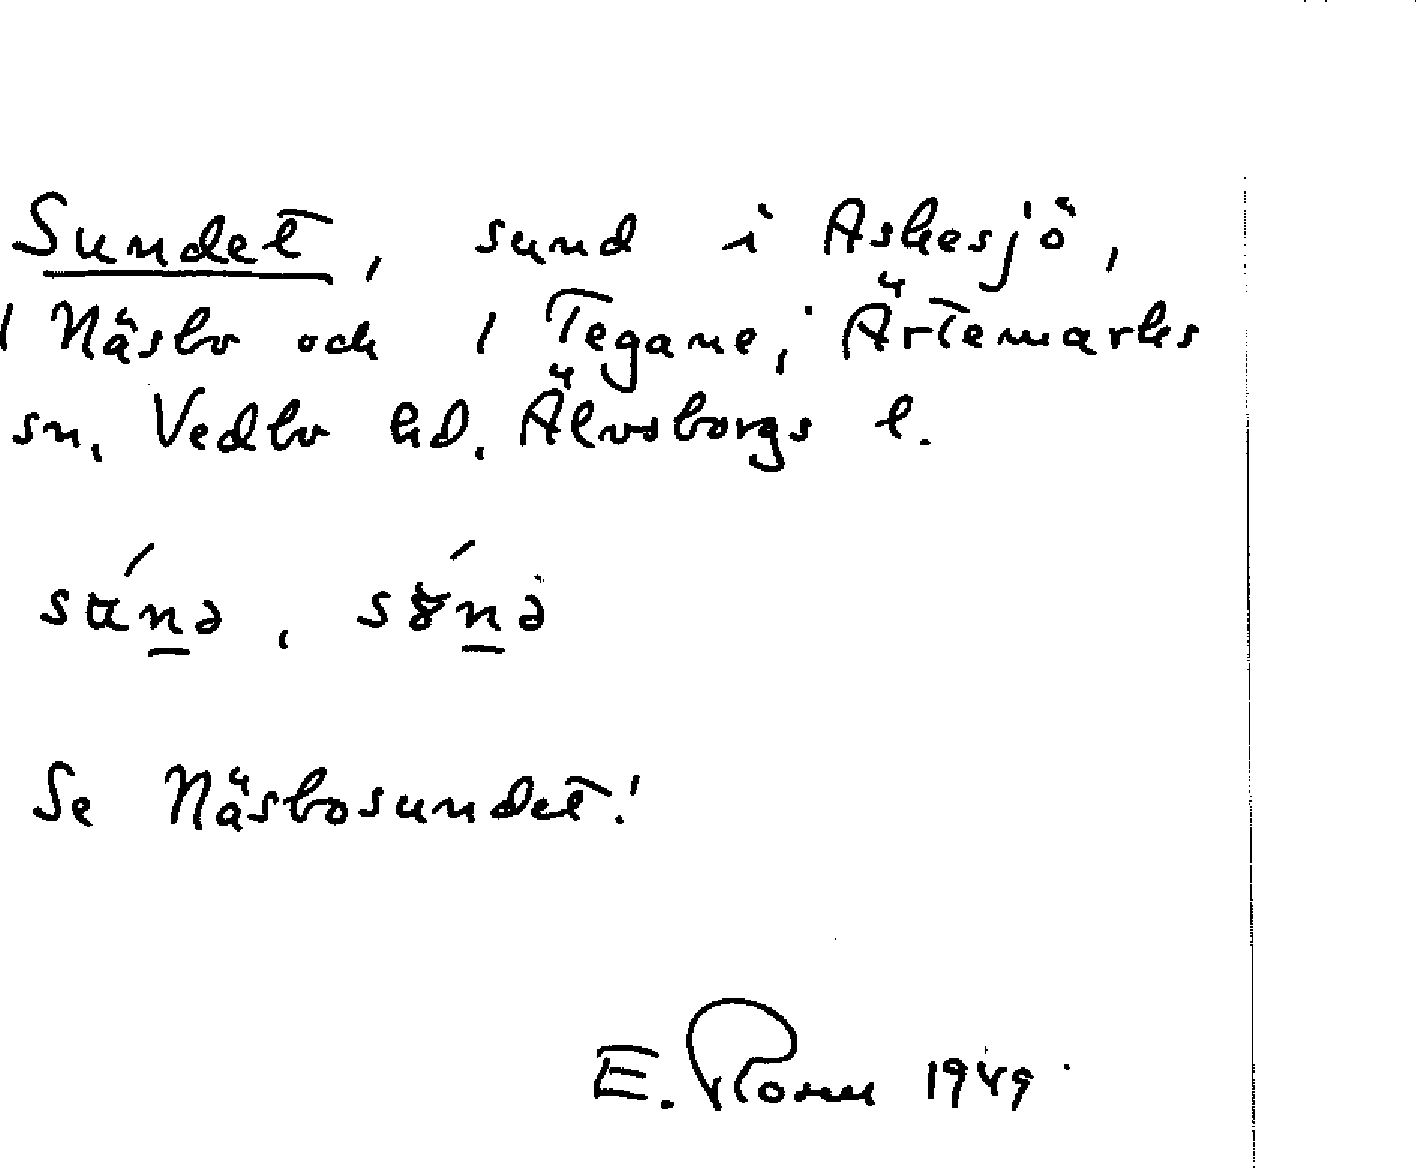 Sundet, sund i Askesjö,
1 Näsbo och 1 Tegane, Ärtemarks
sn, Vedbo hd, Älvsborgs l.
Se Näsbosundet!
E. 1949